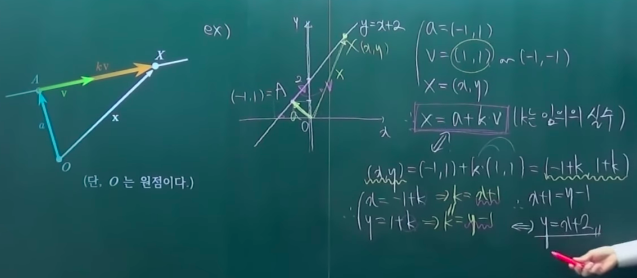 A
v
kv
X
a
x
O
(단, O 는 원점이다.)
ex)
y
y=x+2
X
(x,y)
2
x
v
(-1,1)=A
a
O
x
a=(-1,1)
v=(1,1) or (-1,-1)
x=(x,y)
∴ x=a+kv (k는 임의의 실수)
(x,y)=(-1,1)+k·(1,1)=(-1+k,1+k)
∴ x=-1+k ⇒ k=x+1 ∴ x+1=y-1
y=1+k ⇒ k=y-1 ⇔ y=x+2